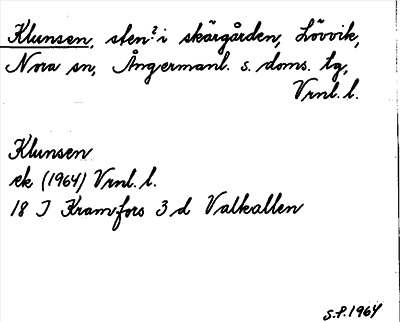 Klunsen, sten? i skärgården, Lövvik,
Nora sn, Ångermanl. s. doms. tg,
Vrnl. l.
Klunsen
ek (1964) Vrnl. l.
18 I Kramfors 3 d Valkallen
S.P. 1964